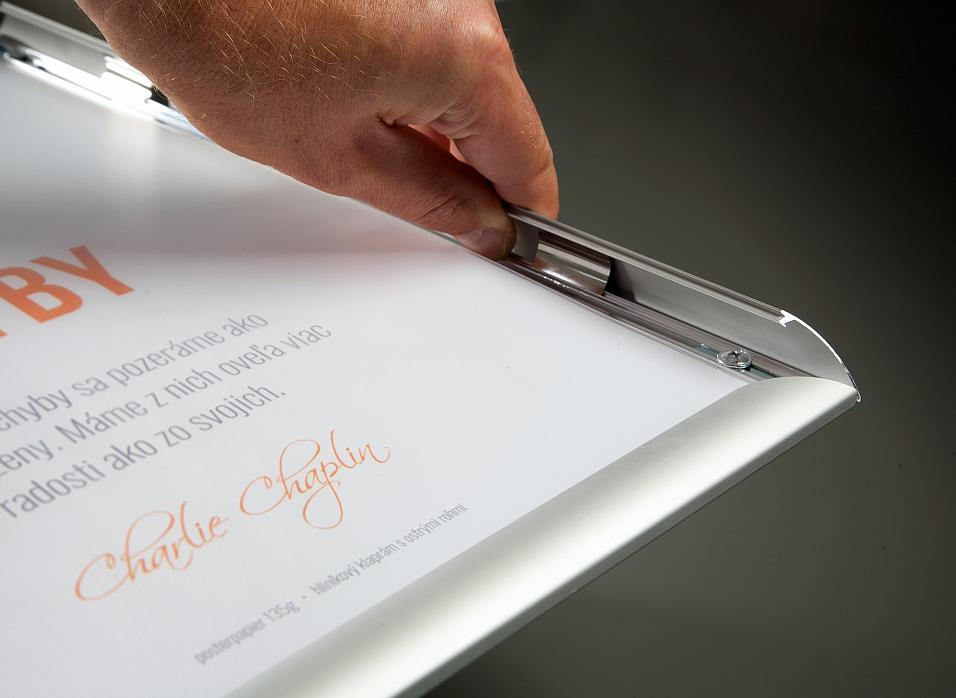 BY
chyby sa pozeráme ako
ženy. Máme z nich oveľa viac
radosti ako zo svojich.
Charlie Chaplin
posterpapier 135g • hliníkový klaprám s ostrými rohmi